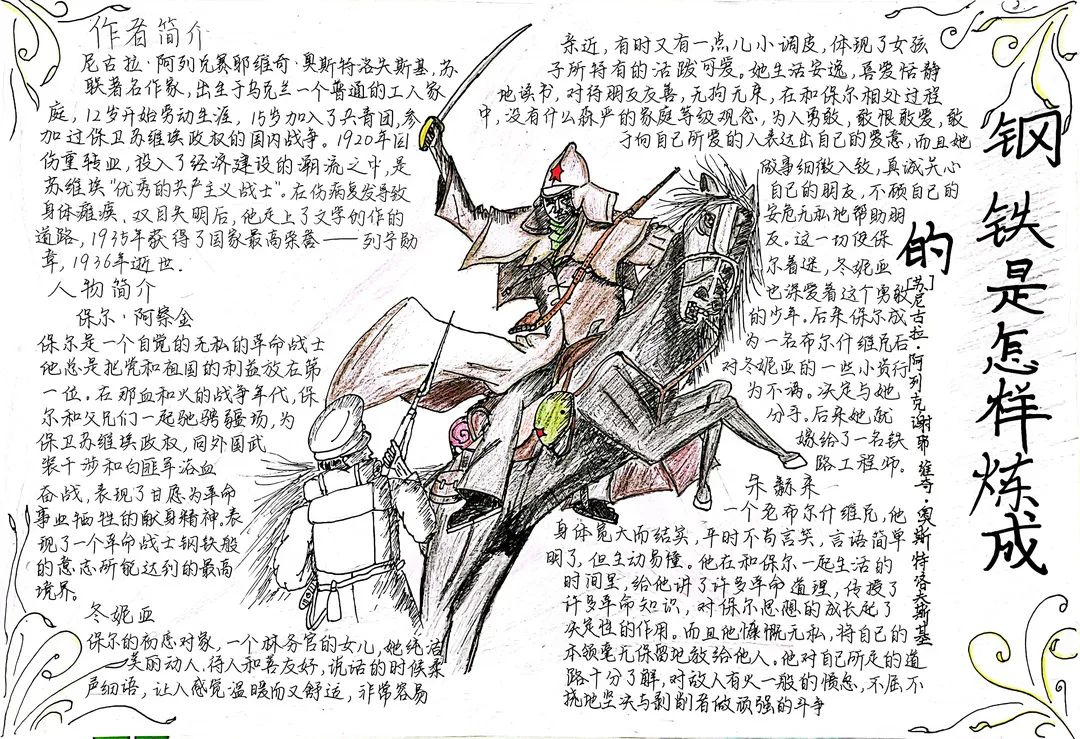 钢铁是怎样炼成的
[苏]尼古拉·阿列克谢耶维奇·奥斯特洛夫斯基
作者简介
尼古拉·阿列克赛耶维奇·奥斯特洛夫斯基,苏
联著名作家,出生于乌克兰一个普通的工人家
庭,12岁开始劳动生涯,15岁加入了共青团,参
加过保卫苏维埃政权的国内战争。1920年因
伤重转业,投入了经济建设的潮流之中,是
苏维埃“优秀的共产主义战士”。在伤病复发导致
身体瘫痪、双目失明后,他走上了文学创作的
道路,1935年获得了国家最高荣誉——列宁勋
章,1936年逝世.
人物简介
保尔·阿察金
保尔是一个自觉的无私的革命战士
他总是把党和祖国的利益放在第
一位。在那血和火的战争年代,保
尔和父兄们一起驰骋疆场,为
保卫苏维埃政权,同外国武
装干涉和白匪军浴血
奋战,表现了甘愿为革命
事业牺牲的献身精神。表
现了一个革命战士钢铁般
的意志所能达到的最高
境界。
冬妮亚
保尔的初恋对象,一个林务官的女儿,她纯洁
美丽动人,待人和善友好,说话的时候柔
声细语,让人感觉温暖而又舒适,非常容易
亲近,有时又有一点儿小调皮,体现了女孩
子所特有的活跋可爱。她生活安逸,喜爱恬静
地读书,对待朋友友善,无拘无束,在和保尔相处过程
中,没有什么森严的家庭等级观念,为人勇敢,敢恨敢爱,敢
于向自己所爱的人表达出自己的爱意,而且她
做事细微入致,真诚关心
自己的朋友,不顾自己的
安危无私地帮助朋
友。这一切使保
尔着迷,冬妮亚
也深爱着这个勇敢
的少年。后来保尔成
为一名布尔什维克后
对冬妮亚的一些小资行
为不满。决定与她
分手。后来她就
嫁给了一名铁
路工程师。
朱赫来
一个老布尔什维克,他
身体宽大而结实,平时不苟言笑,言语简单
明了,但生动易懂。他在和保尔一起生活的
时间里,给他讲了许多革命道理,传授了
许多革命知识,对保尔思想的成长起了
决定性的作用。而且他慷慨无私,将自己的
本领毫无保留地教给他人。他对自己所走的道
路十分了解,对敌人有火一般的愤怒,不屈不
挠地坚决与剥削者做顽强的斗争